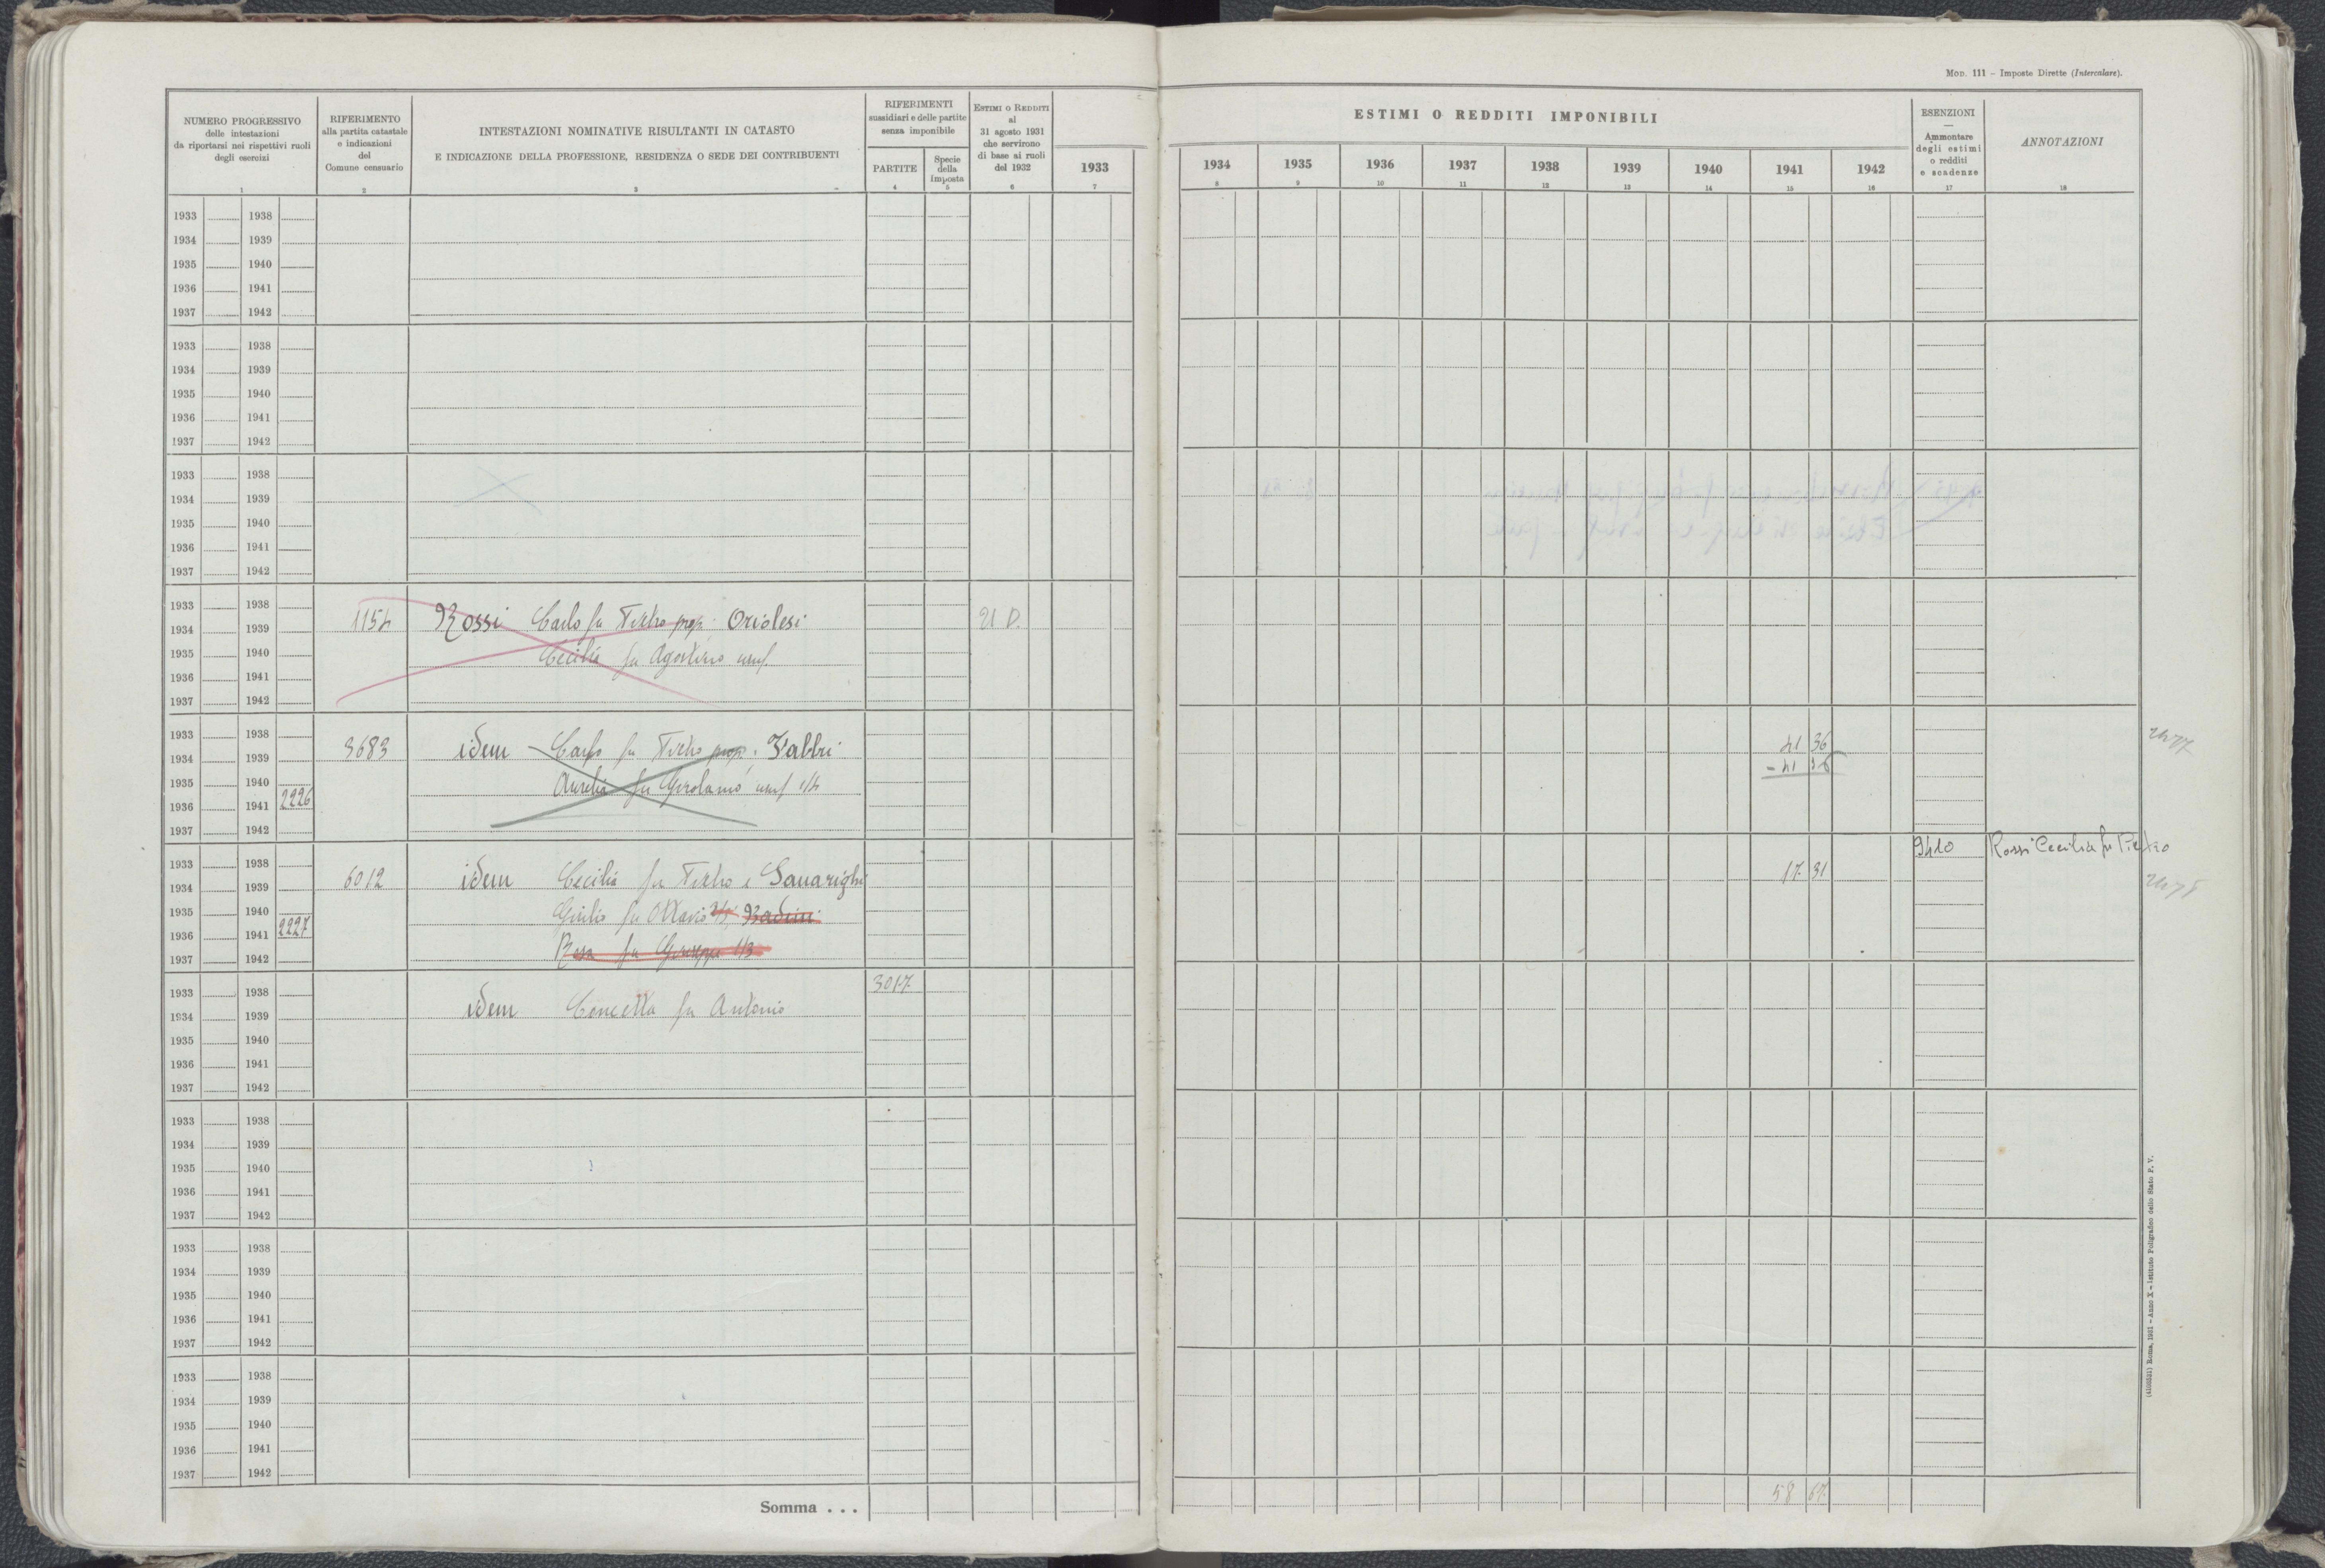 MOD. 111 - Imposte Dirette (Intercalare).
NUMERO PROGRESSIVO
delle intestazioni
da riportarsi nei rispettivi ruoli
degli esercizi
1
RIFERIMENTO
alla partita catastale
e indicazioni
del
Comune censuario
2
INTESTAZIONI NOMINATIVE RISULTANTI IN CATASTO
E INDICAZIONE DELLA PROFESSIONE, RESIDENZA O SEDE DEI CONTRIBUENTI
3
RIFERIMENTI
sussidiari e delle partite
senza imponibile
PARTITE
4
Specie
della
imposta
5
ESTIMI O REDDITI
al
31 agosto 1931
che servirono
di base ai ruoli
del 1932
6
ESTIMI O REDDITI IMPONIBILI
1933 1934 1935 1936 1937 1938 1939 1940 1941 1942
7 8 9 10 11 12 13 14 15 16
ESENZIONI
—
Ammontare
degli estimi
o redditi
e scadenze
17
ANNOTAZIONI
18
1933 1938
1934 1939
1935 1940
1936 1941
1937 1942
1933 1938
1934 1939
1935 1940
1936 1941
1937 1942
1933 1938
1934 1939
1935 1940
1936 1941
1937 1942
1933 1938
1934 1939 1154 Rossi Carlo fu Pietro prop. Oriolesi U D.
1935 1940 Cecilia fu Agostino usuf.
1936 1941
1937 1942
1933 1938
1934 1939 3683 idem Carlo fu Pietro prop. Fabbri 41 36
1935 1940 Aurelia fu Girolamo usuf 1/4 - 41 36
1936 1941 2226
1937 1942
1933 1938 9410 Rossi Cecilia fu Pietro
1934 1939 6012 idem Cecilia fu Pietro e Savarighi 17 31
1935 1940 Giulio fu Ottavio 2/3 Badini
1936 1941 2227
1937 1942 Rosa fu Giuseppe 1/3
1933 1938 3017
1934 1939 idem Concetta fu Antonio
1935 1940
1936 1941
1937 1942
1933 1938
1934 1939
1935 1940
1936 1941
1937 1942
1933 1938
1934 1939
1935 1940
1936 1941
1937 1942
1933 1938
1934 1939
1935 1940
1936 1941
1937 1942
Somma . . . 58 67
(4100521) Roma, 1931 - Anno X - Istituto Poligrafico dello Stato P. V.